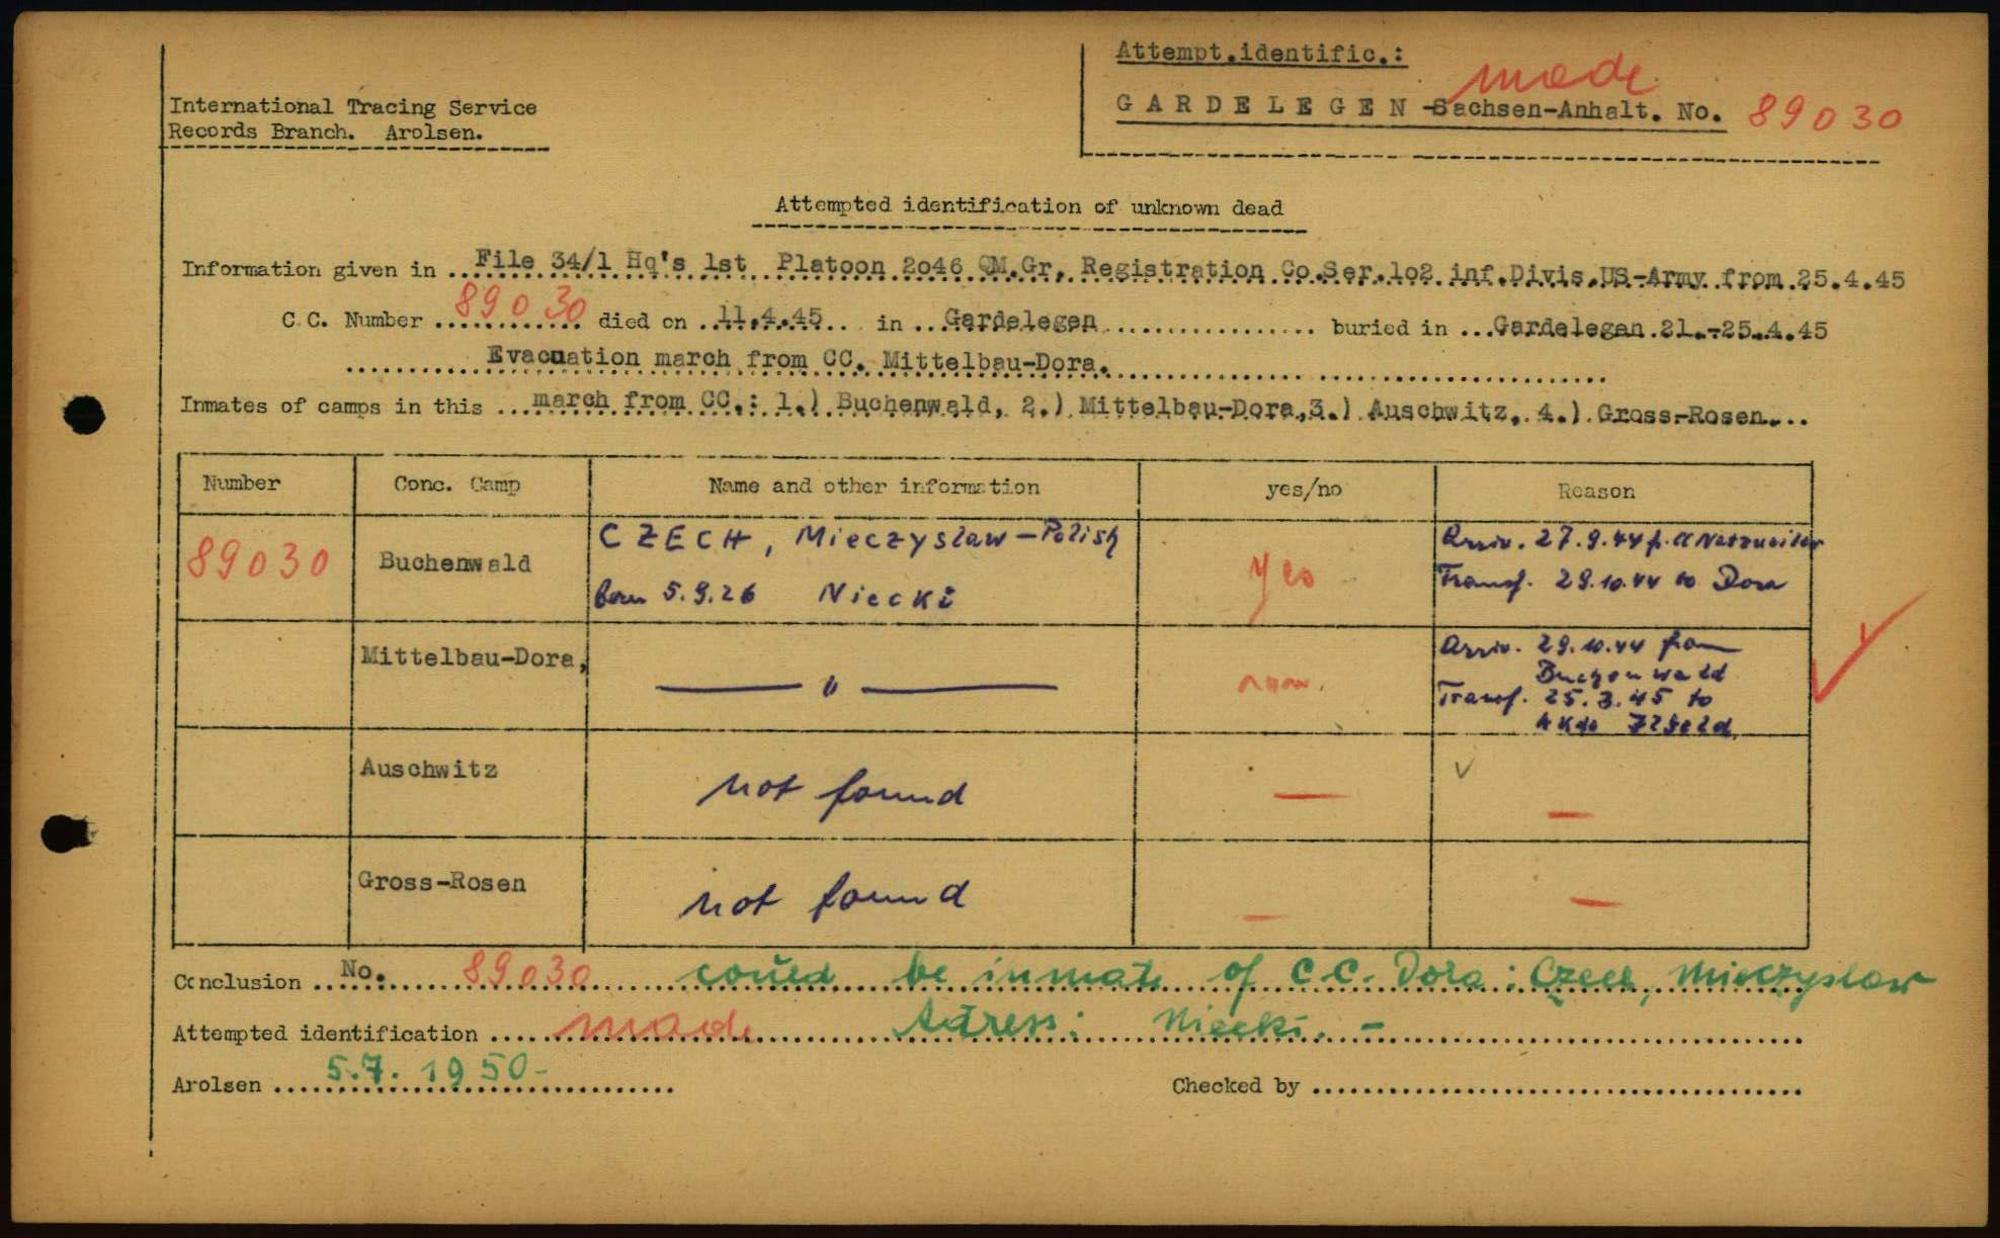 Attempt.identific.:
made
G A R D E L E G E N -Sachsen-Anhalt. No. 89030
International Tracing Service
Records Branch. Arolsen.
Attempted identification of unknown dead
Information given in ...File 34/1 Hq's 1st Platoon 2o46 QM.Gr. Registration Co.Ser.1o2 inf.Divis.US-Army from 25.4.45
C.C. Number ...89030... died on ..11.4.45.. in ...Gardelegen................ buried in ...Gardelegan 21.-25.4.45
Evacuation march from CC. Mittelbau-Dora.
Inmates of camps in this ...march from CC.: 1.) Buchenwald, 2.) Mittelbau-Dora,3.) Auschwitz, 4.) Gross-Rosen...
Number Conc. Camp Name and other information yes/no Reason
89030 Buchenwald CZECH, Mieczyslaw - Polish yes Arriv. 27.9.44 f. Natzweiler
born 5.9.26 Niecki Transf. 29.10.44 to Dora
Mittelbau-Dora, — " — Arriv. 29.10.44 from
Buchenwald
Transf. 25.3.45 to
AKdo Ilfeld
Auschwitz not found — √ —
Gross-Rosen not found — —
Conclusion ...No. 89030 could be inmate of C.C. Dora: Czech, Mieczyslaw
Attempted identification ...made Adress: Niecki. -
Arolsen ...5.7.1950- Checked by ...